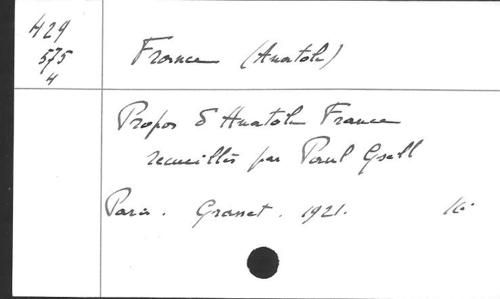 429
575
4
France (Anatole)
Propos d'Anatole France
recueillis par Paul Gsell
Paris. Grasset. 1921. 16°